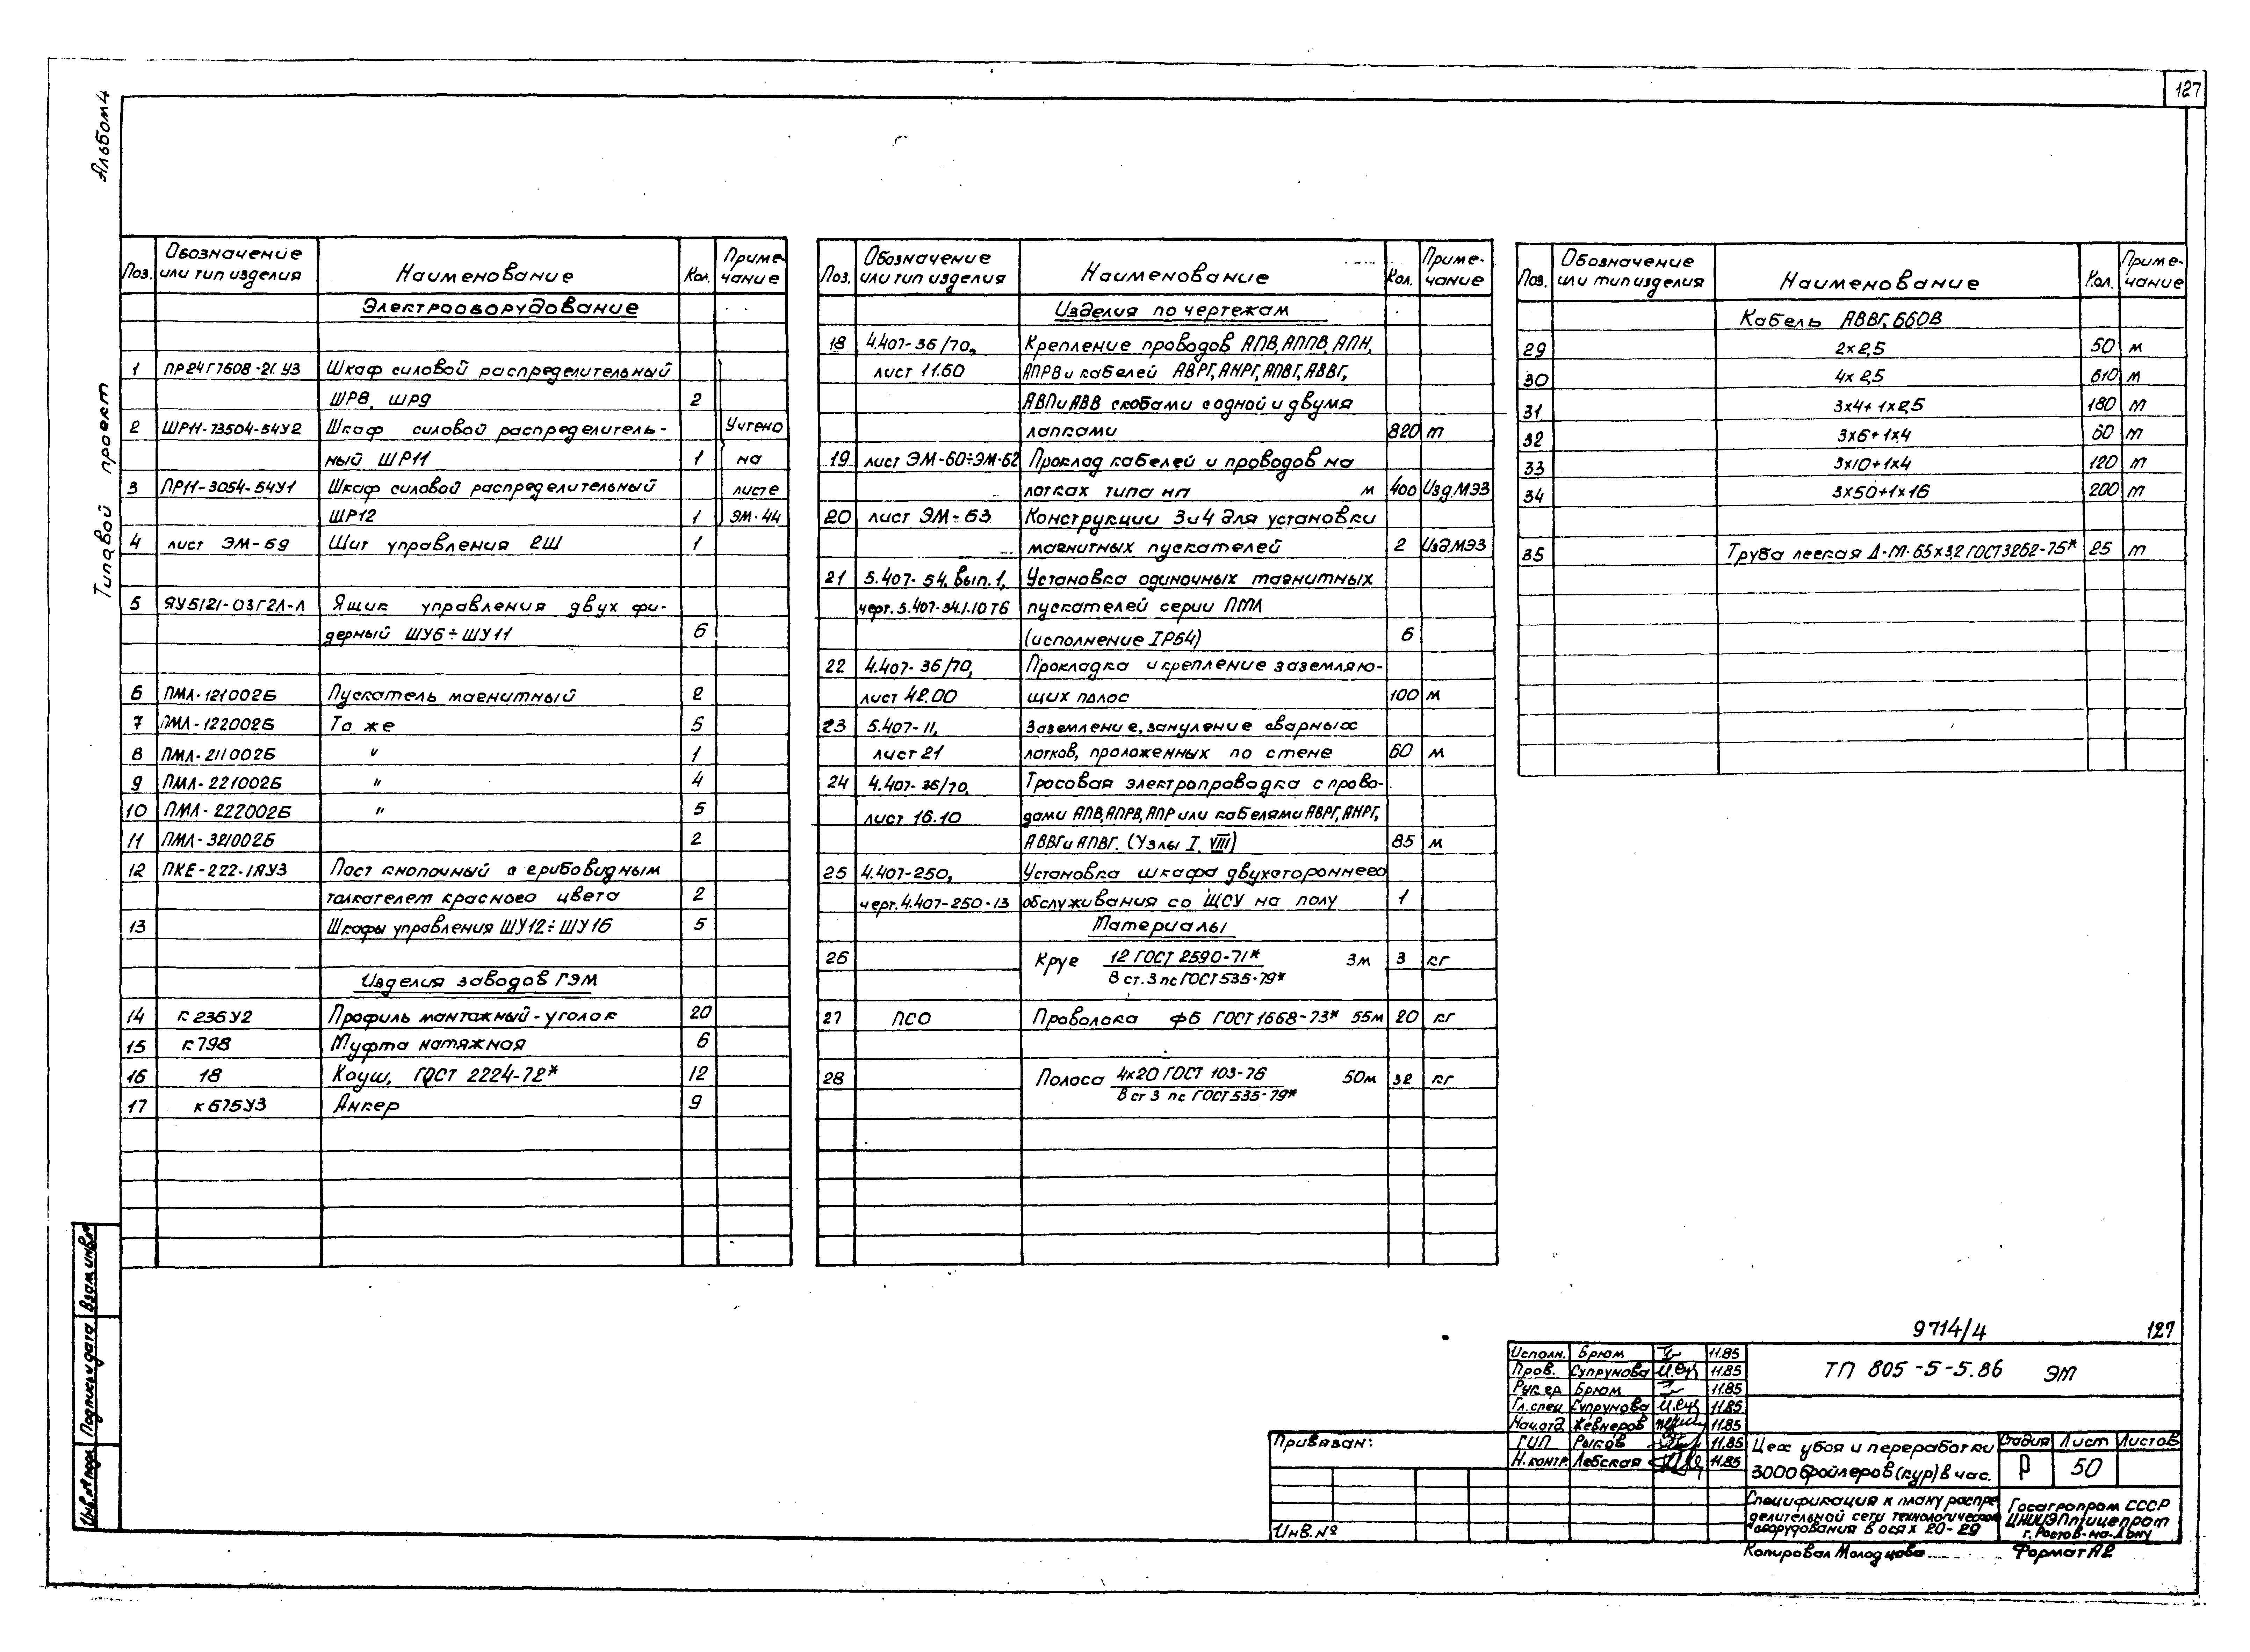 127
Альбом 4
Типовой проект
Поз. Обозначение или тип изделия Наименование Кол. Приме-чание
Электрооборудование
1 ПР24Г7608-2[ У3 Шкаф силовой распределительный
ШР8, ШР9 2
2 ШР11-73504-54У2 Шкаф силовой распределитель- Учтено
ный ШР11 1 на
3 ПР11-3054-54У1 Шкаф силовой распределительный листе
ШР12 1 ЭМ-44
4 лист ЭМ-69 Щит управления 2Щ 1
5 ЯУ5121-03Г2Л-Л Ящик управления двух фи-
дерный ШУ6÷ШУ11 6
6 ПМЛ-121002Б Пускатель магнитный 2
7 ПМЛ-122002Б То же 5
8 ПМЛ-211002Б " 1
9 ПМЛ-221002Б " 4
10 ПМЛ-222002Б " 5
11 ПМЛ-321002Б 2
12 ПКЕ-222-1ЯУ3 Пост кнопочный с грибовидным
толкателем красного цвета 2
13 Шкафы управления ШУ12÷ШУ16 5
Изделия заводов ГЭМ
14 К236У2 Профиль монтажный-уголок 20
15 К798 Муфта натяжная 6
16 18 Коуш, ГОСТ 2224-72* 12
17 К675У3 Анкер 9
Поз. Обозначение или тип изделия Наименование Кол. Приме-чание
Изделия по чертежам
18 4.407-36/70, Крепление проводов АПВ, АППВ, АПН,
лист 11.60 АПРВ и кабелей АВРГ, АНРГ, АПВГ, АВВГ,
АВП и АВВ скобами с одной и двумя
лапками 820 м
19 лист ЭМ-60÷ЭМ-62 Проклад кабелей и проводов на
лотках типа НЛ м 400 Изд.МЭЗ
20 лист ЭМ-63 Конструкции 3 и 4 для установки
магнитных пускателей 2 Изд.МЭЗ
21 5.407-54. Вып.1, Установка одиночных магнитных
черт.5.407-54.1.10Т6 пускателей серии ПМЛ
(исполнение IP54) 6
22 4.407-36/70, Прокладка и крепление заземляю-
лист 42.00 щих полос 100 м
23 5.407-11, Заземление, зануление сварных
лист 21 лотков, проложенных по стене 60 м
24 4.407-36/70, Тросовая электропроводка с прово-
лист 16.10 дами АПВ, АПРВ, АПР или кабелями АВРГ, АНРГ,
АВВГ и АПВГ. (Узлы I, VIII) 85 м
25 4.407-250, Установка шкафа двухстороннего
черт.4.407-250-13 обслуживания со ЩСУ на полу 1
Материалы
26 Круг 12 ГОСТ 2590-71* 3м 3 кг
В ст.3 пс ГОСТ 535-79*
27 ПСО Проволока ф6 ГОСТ 1668-73* 55м 20 кг
28 Полоса 4х20 ГОСТ 103-76 50м 32 кг
В ст 3 пс ГОСТ 535-79*
Поз. Обозначение или тип изделия Наименование Кол. Приме-чание
Кабель АВВГ, 660В
29 2х2,5 50 м
30 4х2,5 610 м
31 3х4+1х2,5 180 м
32 3х6+1х4 60 м
33 3х10+1х4 120 м
34 3х50+1х16 200 м
35 Труба легкая Д-М-65х3,2 ГОСТ3262-75* 25 м
9714/4 127
Исполн. Брюм 11.85
Пров. Супрунова 11.85
Рук.гр Брюм 11.85
Гл.спец Супрунова 11.85
Нач.отд Жевнеров 11.85
ГИП Рыков 11.85
Н.контр. Левская 11.85
ТП 805-5-5.86 ЭМ
Привязан:
Инв.№
Цех убоя и переработки
3000 бройлеров (кур) в час.
Стадия Лист Листов
Р 50
Спецификация к плану распре
делительной сети технологического
оборудования в осях 20-29
Госагропром СССР
ЦНИИЭПптицепром
г. Ростов-на-Дону
Копировал Молодцова Формат А2
Взам.инв.№
Подпись и дата
Инв.№ подл.